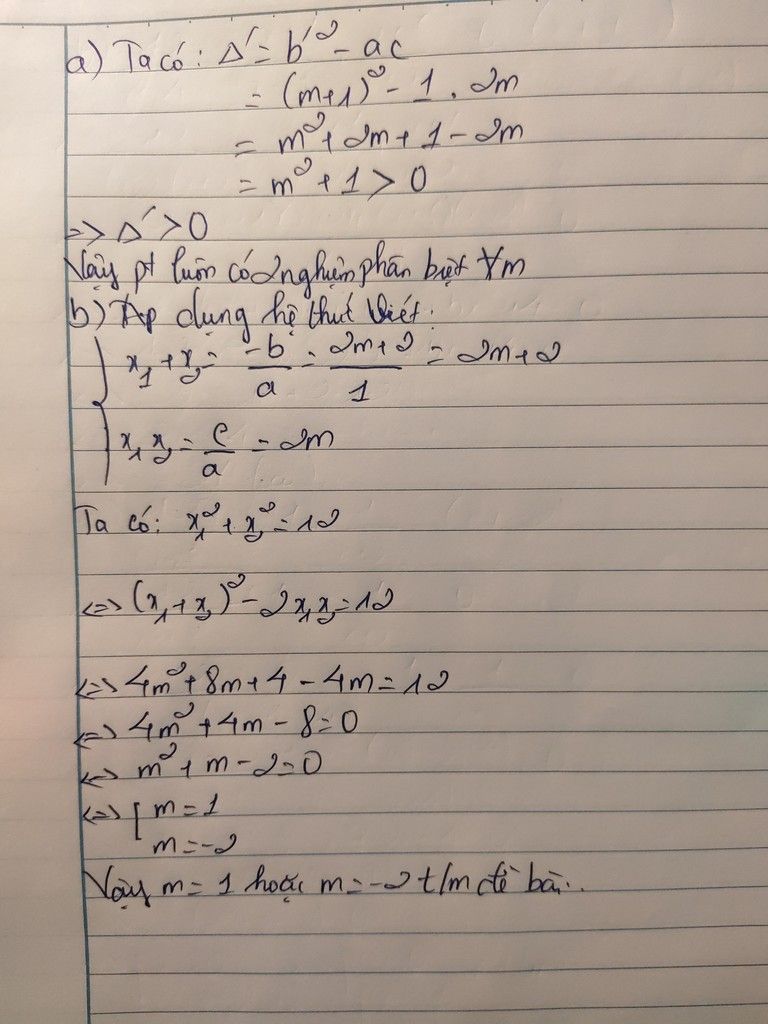 a) Ta có: Δ' = b'² - ac
= (m+1)² - 1 . 2m
= m² + 2m + 1 - 2m
= m² + 1 > 0
=> Δ' > 0
Vậy pt luôn có 2 nghiệm phân biệt ∀m
b) Áp dụng hệ thức Viét:
{ x₁ + x₂ = -b/a = 2m+2/1 = 2m+2
x₁x₂ = c/a = 2m
Ta có: x₁² + x₂² = 12
<=> (x₁ + x₂)² - 2x₁x₂ = 12
<=> 4m² + 8m + 4 - 4m = 12
<=> 4m² + 4m - 8 = 0
<=> m² + m - 2 = 0
<=> [ m = 1
m = -2
Vậy m = 1 hoặc m = -2 t/m đề bài.